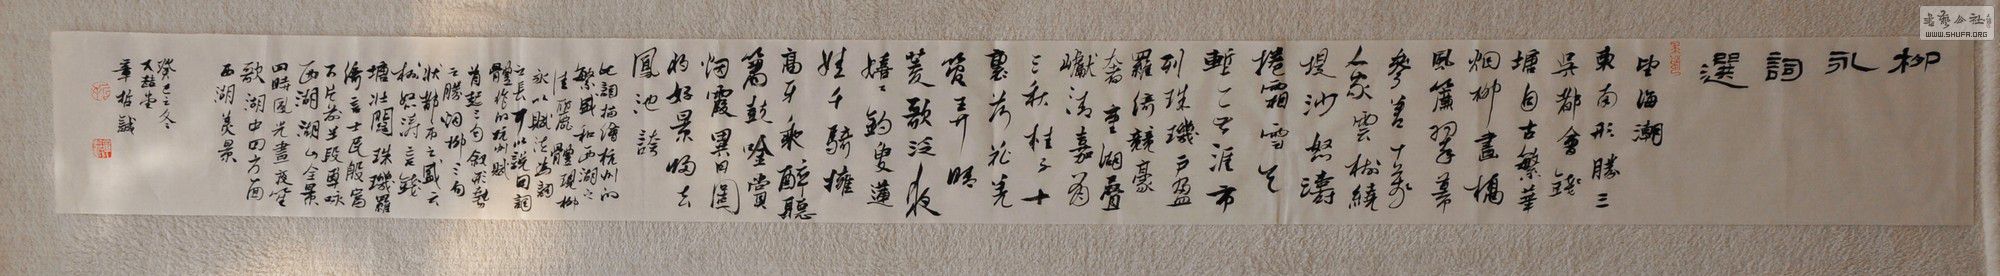 柳
永
詞
選
望海潮
東南形勝三
吳都會錢
塘自古繁華
烟柳畫橋
風簾翠幕
參差十萬
人家雲樹繞
堤沙怒濤
捲霜雪天
塹無涯市
列珠璣戶盈
羅綺競豪
奢重湖疊
巘清嘉有
三秋桂子十
里荷花羌
管弄晴
菱歌泛夜
嬉嬉釣叟蓮
娃千騎擁
高牙乘醉聽
簫鼓吟賞
烟霞異日圖
將好景歸去
鳳池誇
此詞描繪杭州的
繁盛和西湖之
佳麗體現柳
永以賦法為詞
之長可以說回詞
體作的杭州賦
首起三句敘杭
之勝烟柳三句
狀都市之盛云
樹怒濤言錢
塘壯闊珠璣羅
綺言士民殷富
下片前半段專咏
西湖湖山全景
四時風光晝夜笙
歌湖中四方百
西湖美景
癸巳之冬
章哲誠
書藝公社
WWW.SHUFA.ORG